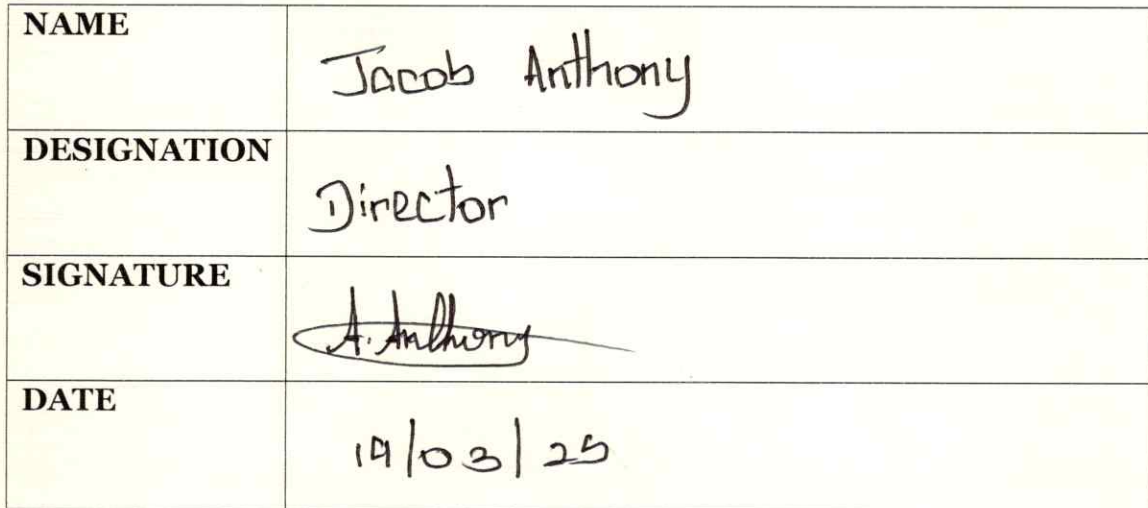 NAME Jacob Anthony
DESIGNATION Director
SIGNATURE A. Anthony
DATE 19/03/25